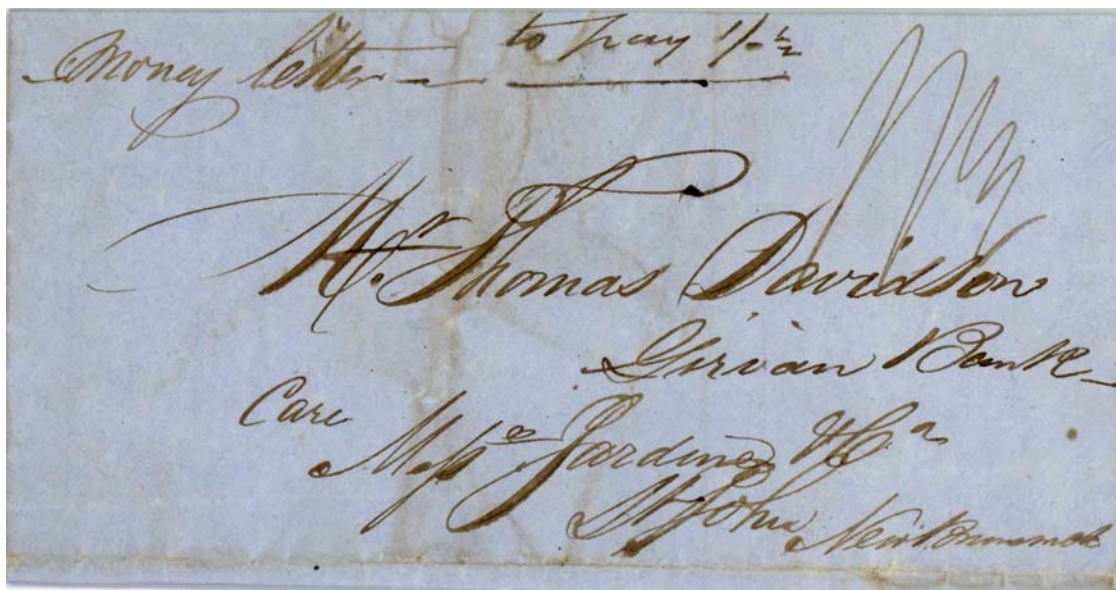 Money letter — to pay 1/-½
Mr. Thomas Davidson
Girvan Bank
Care
Messrs Jardine & Co
St John New Brunswick